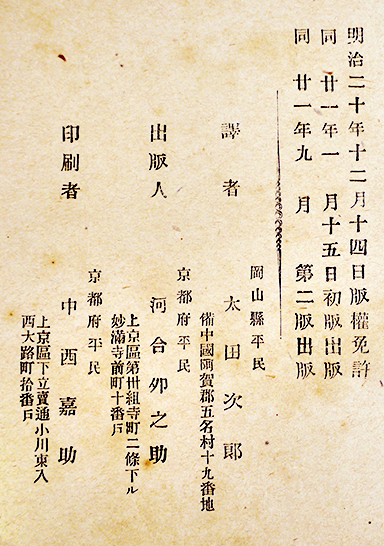 明治二十年十二月十四日版權免許
同 廿一年一 月十五日初版出版
同 廿一年九 月 第二版出版
岡山縣平民
譯者 太田次郎
備中國哲賀郡五名村十九番地
京都府平民
出版人 河合卯之助
上京區第卅組寺町二條下ル
妙滿寺前町十番戶
京都府平民
印刷者 中西嘉助
上京區下立賣通小川東入
西大路町拾番戶